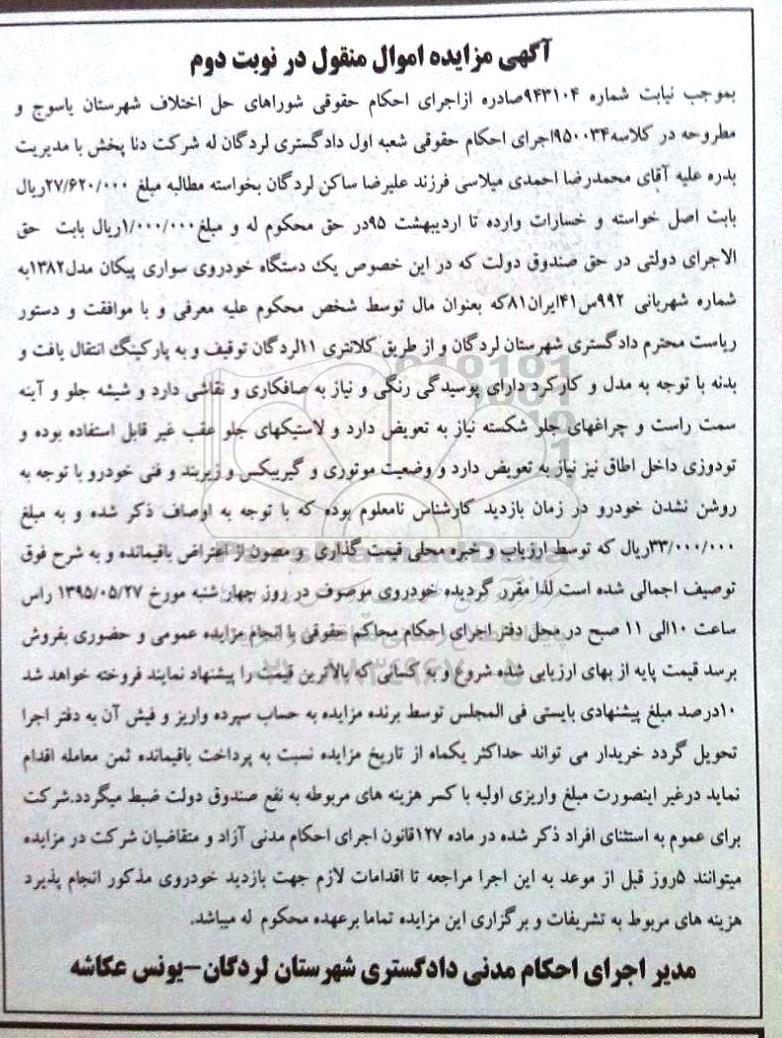 آگهی مزایده اموال منقول در نوبت دوم
بموجب نیابت شماره ۹۴۳۱۰۴صادره ازاجرای احکام حقوقی شوراهای حل اختلاف شهرستان یاسوج و
مطروحه در کلاسه۹۵۰۰۳۴اجرای احکام حقوقی شعبه اول دادگستری لردگان له شرکت دنا پخش با مدیریت
بدره علیه آقای محمدرضا احمدی میلاسی فرزند علیرضا ساکن لردگان بخواسته مطالبه مبلغ ۲۷/۶۲۰/۰۰۰ریال
بابت اصل خواسته و خسارات وارده تا اردیبهشت ۹۵در حق محکوم له و مبلغ۱/۰۰۰/۰۰۰ریال بابت حق
الاجرای دولتی در حق صندوق دولت که در این خصوص یک دستگاه خودروی سواری پیکان مدل۱۳۸۲به
شماره شهربانی ۹۹۲س۴۱ایران۸۱که بعنوان مال توسط شخص محکوم علیه معرفی و با موافقت و دستور
ریاست محترم دادگستری شهرستان لردگان و از طریق کلانتری ۱۱لردگان توقیف و به پارکینگ انتقال یافت و
بدنه با توجه به مدل و کارکرد دارای پوسیدگی رنگی و نیاز به صافکاری و نقاشی دارد و شیشه جلو و آینه
سمت راست و چراغهای جلو شکسته نیاز به تعویض دارد و لاستیکهای جلو عقب غیر قابل استفاده بوده و
تودوزی داخل اطاق نیز نیاز به تعویض دارد و وضعیت موتوری و گیربیکس و زیربند و فنی خودرو با توجه به
روشن نشدن خودرو در زمان بازدید کارشناس نامعلوم بوده که با توجه به اوصاف ذکر شده و به مبلغ
۳۳/۰۰۰/۰۰۰ریال که توسط ارزیاب و خبره محلی قیمت گذاری و مصون از اعتراض باقیمانده و به شرح فوق
توصیف اجمالی شده است لذا مقرر گردیده خودروی موصوف در روز چهارشنبه مورخ ۱۳۹۵/۰۵/۲۷ راس
ساعت ۱۰الی ۱۱ صبح در محل دفتر اجرای احکام محاکم حقوقی با انجام مزایده عمومی و حضوری بفروش
برسد قیمت پایه از بهای ارزیابی شده شروع و به کسانی که بالاترین قیمت را پیشنهاد نمایند فروخته خواهد شد
۱۰درصد مبلغ پیشنهادی بایستی فی المجلس توسط برنده مزایده به حساب سپرده واریز و فیش آن به دفتر اجرا
تحویل گردد خریدار می تواند حداکثر یکماه از تاریخ مزایده نسبت به پرداخت باقیمانده ثمن معامله اقدام
نماید درغیر اینصورت مبلغ واریزی اولیه با کسر هزینه های مربوطه به نفع صندوق دولت ضبط میگردد.شرکت
برای عموم به استثنای افراد ذکر شده در ماده ۱۲۷قانون اجرای احکام مدنی آزاد و متقاضیان شرکت در مزایده
میتوانند ۵روز قبل از موعد به این اجرا مراجعه تا اقدامات لازم جهت بازدید خودروی مذکور انجام پذیرد
هزینه های مربوط به تشریفات و برگزاری این مزایده تماما برعهده محکوم له میباشد.
مدیر اجرای احکام مدنی دادگستری شهرستان لردگان-یونس عکاشه
ParsNamadData